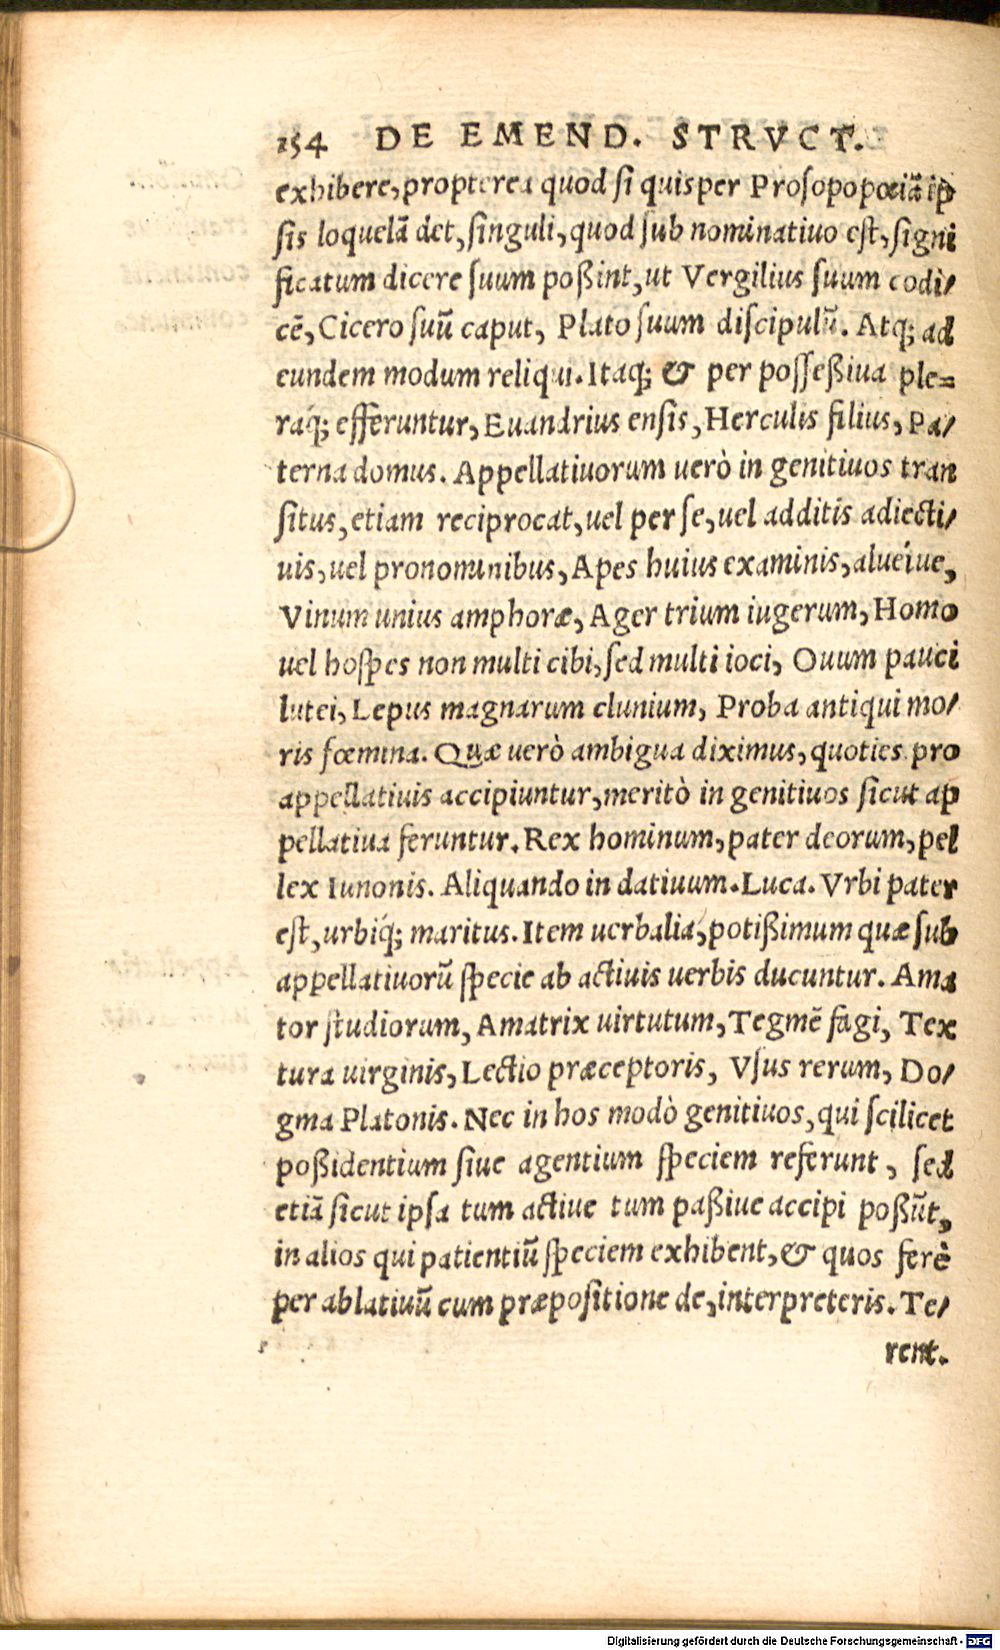 154 DE EMEND. STRVCT.
exhibere, propterea quod si quis per Prosopopœiã ip
sis loquelã det, singuli, quod sub nominatiuo est, signi
ficatum dicere suum poßint, ut Vergilius suum codi/
cẽ, Cicero suũ caput, Plato suum discipulũ. Atq; ad
eundem modum reliqui. Itaq; & per posseßiua ple-
ráq; efferuntur, Euandrius ensis, Herculis filius, Pa/
terna domus. Appellatiuorum uerò in genitiuos tran
situs, etiam reciprocat, uel per se, uel additis adiecti/
uis, uel pronominibus, Apes huius examinis, alueíue,
Vinum unius amphoræ, Ager trium iugerum, Homo
uel hospes non multi cibi, sed multi ioci, Ouum pauci
lutei, Lepus magnarum clunium, Proba antiqui mo/
ris fœmina. Quæ uerò ambigua diximus, quoties pro
appellatiuis accipiuntur, meritò in genitiuos sicut ap
pellatiua feruntur. Rex hominum, pater deorum, pel
lex Iunonis. Aliquando in datiuum. Luca. Vrbi pater
est, urbiq́; maritus. Item uerbalia, potißimum quæ sub
appellatiuorũ specie ab actiuis uerbis ducuntur. Ama
tor studiorum, Amatrix uirtutum, Tegmẽ fagi, Tex
tura uirginis, Lectio præceptoris, Vsus rerum, Do/
gma Platonis. Nec in hos modò genitiuos, qui scilicet
poßidentium siue agentium speciem referunt, sed
etiã sicut ipsa tum actiue tum paßiue accipi poßũt,
in alios qui patientiũ speciem exhibent, & quos ferè
per ablatiuũ cum præpositione de, interpreteris. Te/
rent.
Digitalisierung gefördert durch die Deutsche Forschungsgemeinschaft - DFG